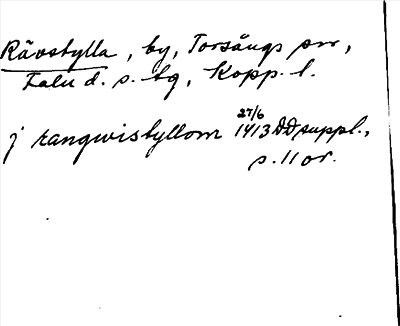 Rävstylla, by, Torsångs sn,
Falu d. s. tg, Kopp. l.
j rangwistyllom 27/6 1413 DD suppl.,
s. 11 or.